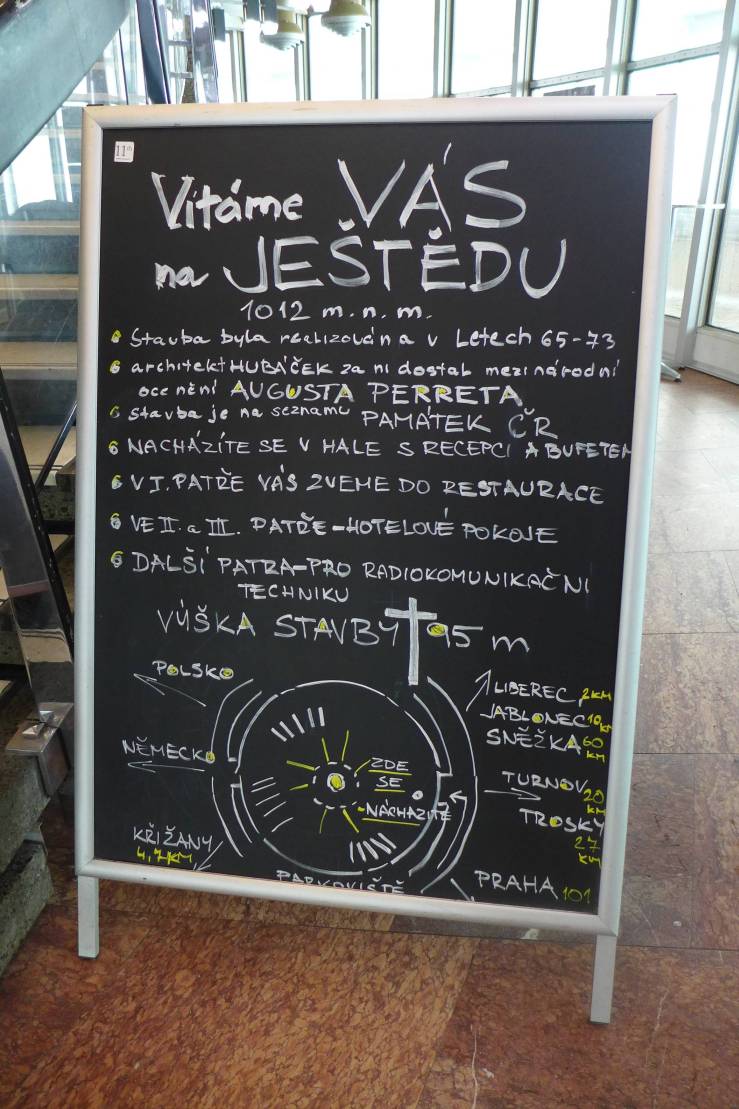 11
Vítáme VÁS
na JEŠTĚDU
1012 m.n.m.
Stavba byla realizována v Letech 65-73
architekt HUBÁČEK za ni dostal mezinárodní
ocenění AUGUSTA PERRETA
Stavba je na seznamu PAMÁTEK ČR
NACHÁZÍTE SE V HALE S RECEPCÍ A BUFETEM
V I. PATŘE VÁS ZVEME DO RESTAURACE
VE II. a III. PATŘE-HOTELOVÉ POKOJE
DALŠÍ PATRA-PRO RADIOKOMUNIKAČNÍ
TECHNIKU
VÝŠKA STAVBY 95 m
POLSKO
NĚMECKO
KŘIŽANY
4,7KM
ZDE
SE
NÁCHÁZÍTE
PARKOVIŠTĚ
LIBEREC, 2KM
JABLONEC 10KM
SNĚŽKA 60
KM
TURNOV 20
KM
TROSKY
27
KM
PRAHA 101